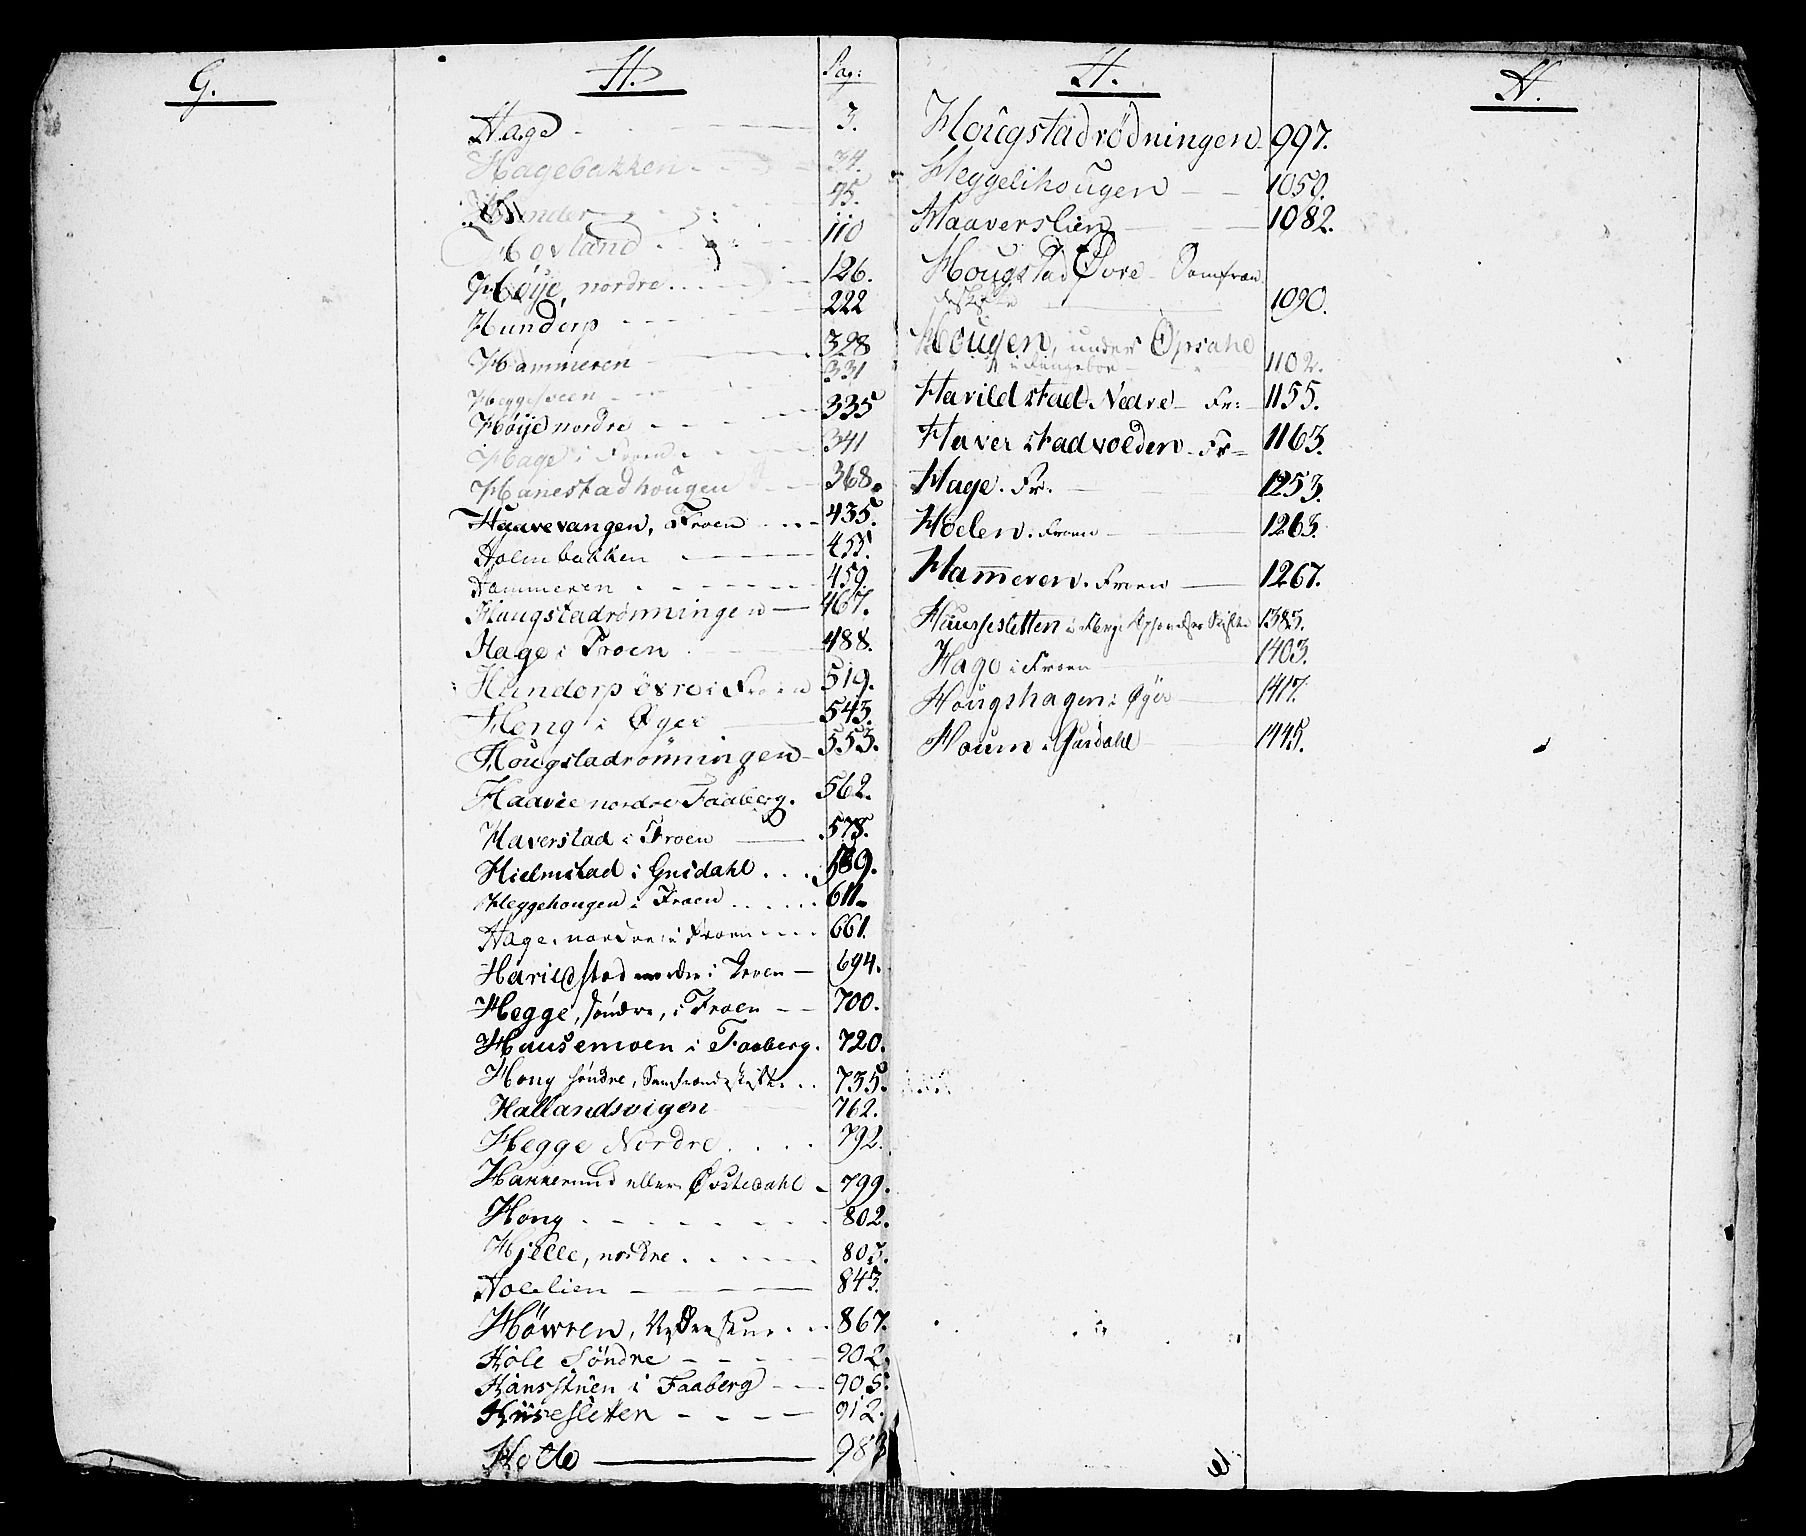 G.
H. Pag:
Hage 3.
Hagebakken 34.
45.
Hovland 110
Høye, nordre 126.
Hunderp 222
Hammeren 328
Heggesveen 331
Høye nordre 335
Hage i Froen 341
Hanestadhougen 368.
Haavevangen, Froen 435.
Holmbakken 455.
Hammeren 459.
Haugstadrønningen 467.
Hage i Froen 488.
Hunderp øvre i Froen 519.
Heng i Øyer 543.
Hougstadrønningen 553.
Haavie nordre Faaberg. 562.
Haverstad i Froen 578.
Hielmstad i Gusdahl 589.
Heggehougen i Froen 611
Hage nordre i Froen 661.
Harildstad nordre i Froen 694.
Hegge, søndre, i Froen 700.
Hausemoen i Faaberg. 720.
Hong søndre, Samfrændeskifte 735.
Hallandsvigen 762.
Hegge Nordre 792.
Hannerud eller Øvstedahl 799.
Hong 802.
Hjelle, nordre 805.
Holelien 843.
Höwren, 867.
Hole Søndre 902.
Hansstuen i Faaberg 905.
Husesletten 912.
Holte 983
H.
Hougstadrödningen 997.
Heggelihougen 1050.
Haaverslien 1082.
Hougstad Øvre Samfræn
deskifte 1090.
Hougen, under Opsahl
i Ringeboe 1102.
Harildstad Nedre Fr: 1155.
Haverstadvolden Fr 1163.
Hage. Fr. 1253.
Hoelen. Froen 1263.
Hammeren. Froen 1267.
Haussesletten 1385.
Hage i Froen 1403.
Hougshagen i Øyer 1417.
Houm i Gusdahl 1445.
H.